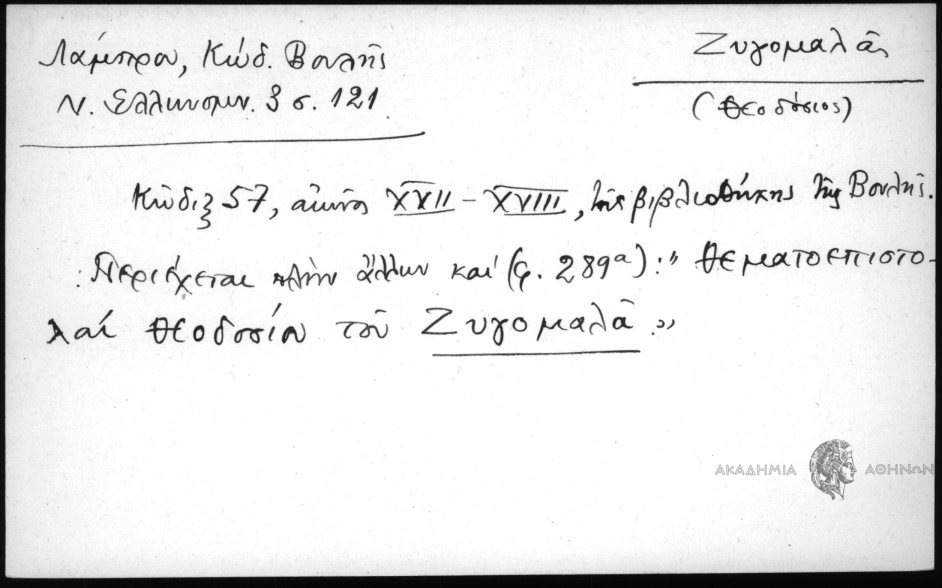 Λάμπρου, Κώδ. Βουλῆς
Ν. Ἑλληνομν. 3 σ. 121
Ζυγομαλᾶς
(Θεοδόσιος)
Κῶδιξ 57, αἰῶνος XVII – XVIII, τῆς βιβλιοθήκης τῆς Βουλῆς.
Περιέχεται πλὴν ἄλλων καί (φ. 289α): "Θεματοεπιστο-
λαί Θεοδοσίου τοῦ Ζυγομαλᾶ"
ΑΚΑΔΗΜΙΑ ΑΘΗΝΩΝ